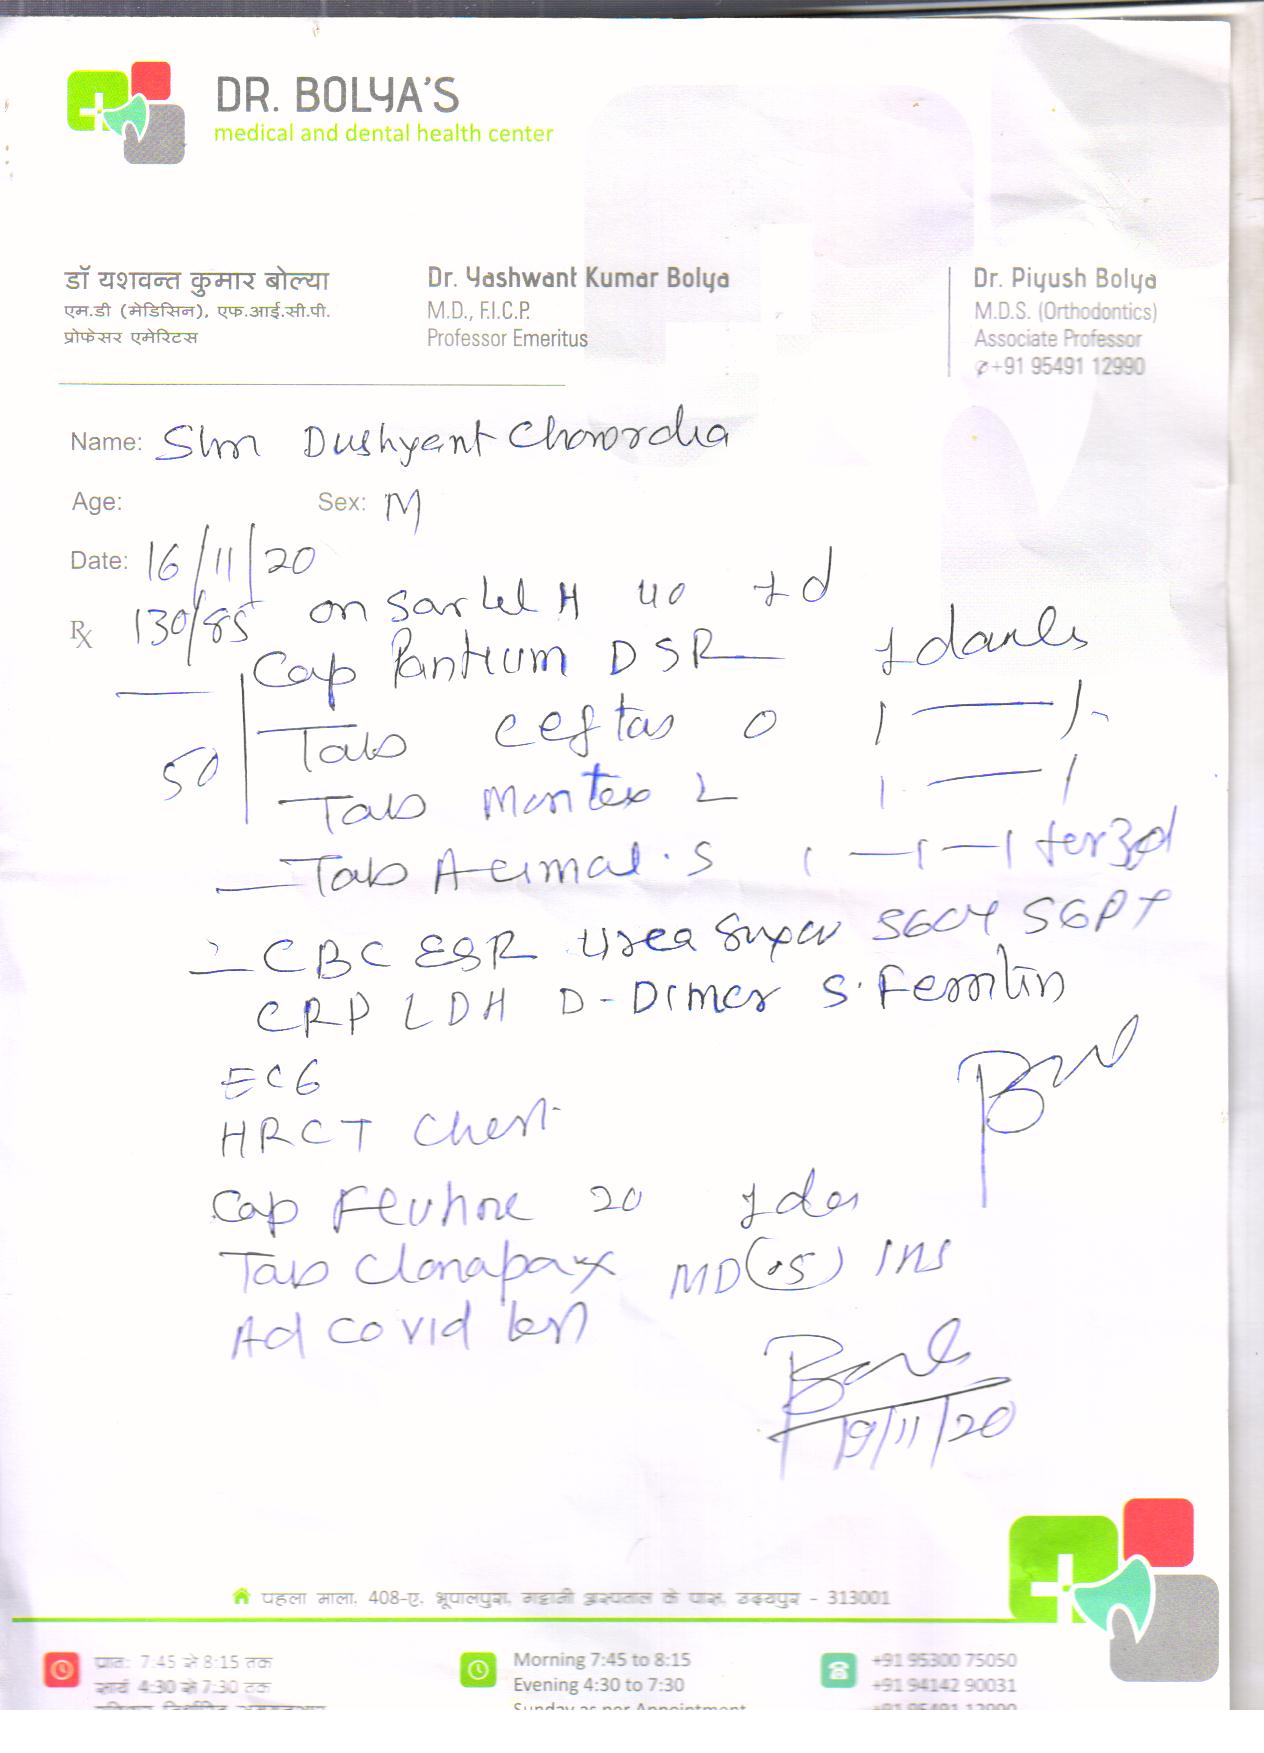 DR. BOLYA'S
medical and dental health center
डॉ यशवन्त कुमार बोल्या
एम.डी (मेडिसिन), एफ.आई.सी.पी.
प्रोफेसर एमेरिटस
Dr. Yashwant Kumar Bolya
M.D., F.I.C.P.
Professor Emeritus
Dr. Piyush Bolya
M.D.S. (Orthodontics)
Associate Professor
✆+91 95491 12990
Name: Shri Dushyant Choordia
Age: Sex: M
Date: 16/11/20
Rx 130/85 on Sartel H 40 1 d
Cap Pantium DSR 1 daily
Tab Ceftas O 1 — 1
50
Tab Montex L 1 — 1
Tab Acimal.S 1 — 1 — 1 for 3d
CBC ESR Urea Sugar SGOT SGPT
CRP LDH D-Dimer S.Ferritin
ECG
HRCT Chest
Cap 20
Tab Clonapax MD (.5) 1 HS
Ad Covid test
19/11/20
पहला माला, 408-ए, भूपालपुरा, गट्टानी अस्पताल के पास, उदयपुर - 313001
प्रातः 7:45 से 8:15 तक
सायं 4:30 से 7:30 तक
Morning 7:45 to 8:15
Evening 4:30 to 7:30
Sunday as per Appointment
+91 95300 75050
+91 94142 90031
+91 95491 12990